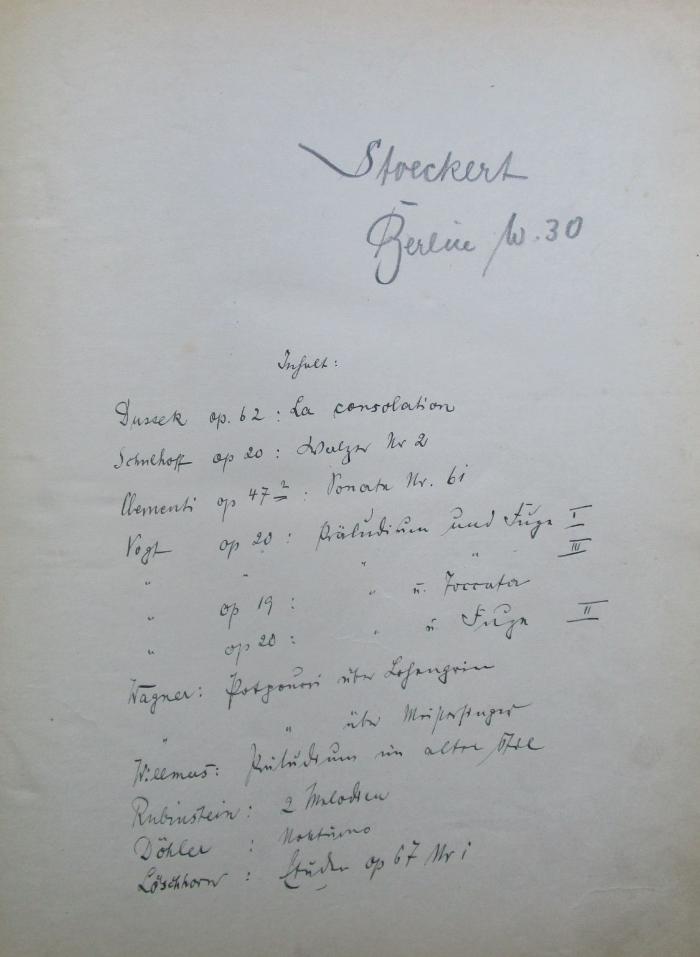 Stoeckert
Berlin W. 30
Inhalt:
Dussek op. 62 : La consolation
Schulhoff op 20 : Walzer Nr 2
Clementi op 47 2 : Sonate Nr. 61
Vogt op 20 : Präludium und Fuge I
" " " " III
" op 19 : " u. Toccata
" op 20 : " u Fuge II
Wagner: Potpourri über Lohengrin
" " über Meistersinger
Präludium im alten Stil
Rubinstein: 2 Melodien
Döhler : Notturno
Löschhorn : Etüden op 67 Nr 1